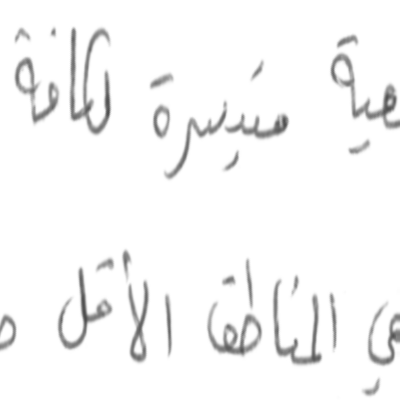 ميسرة لكافة
في المناطق الأقل